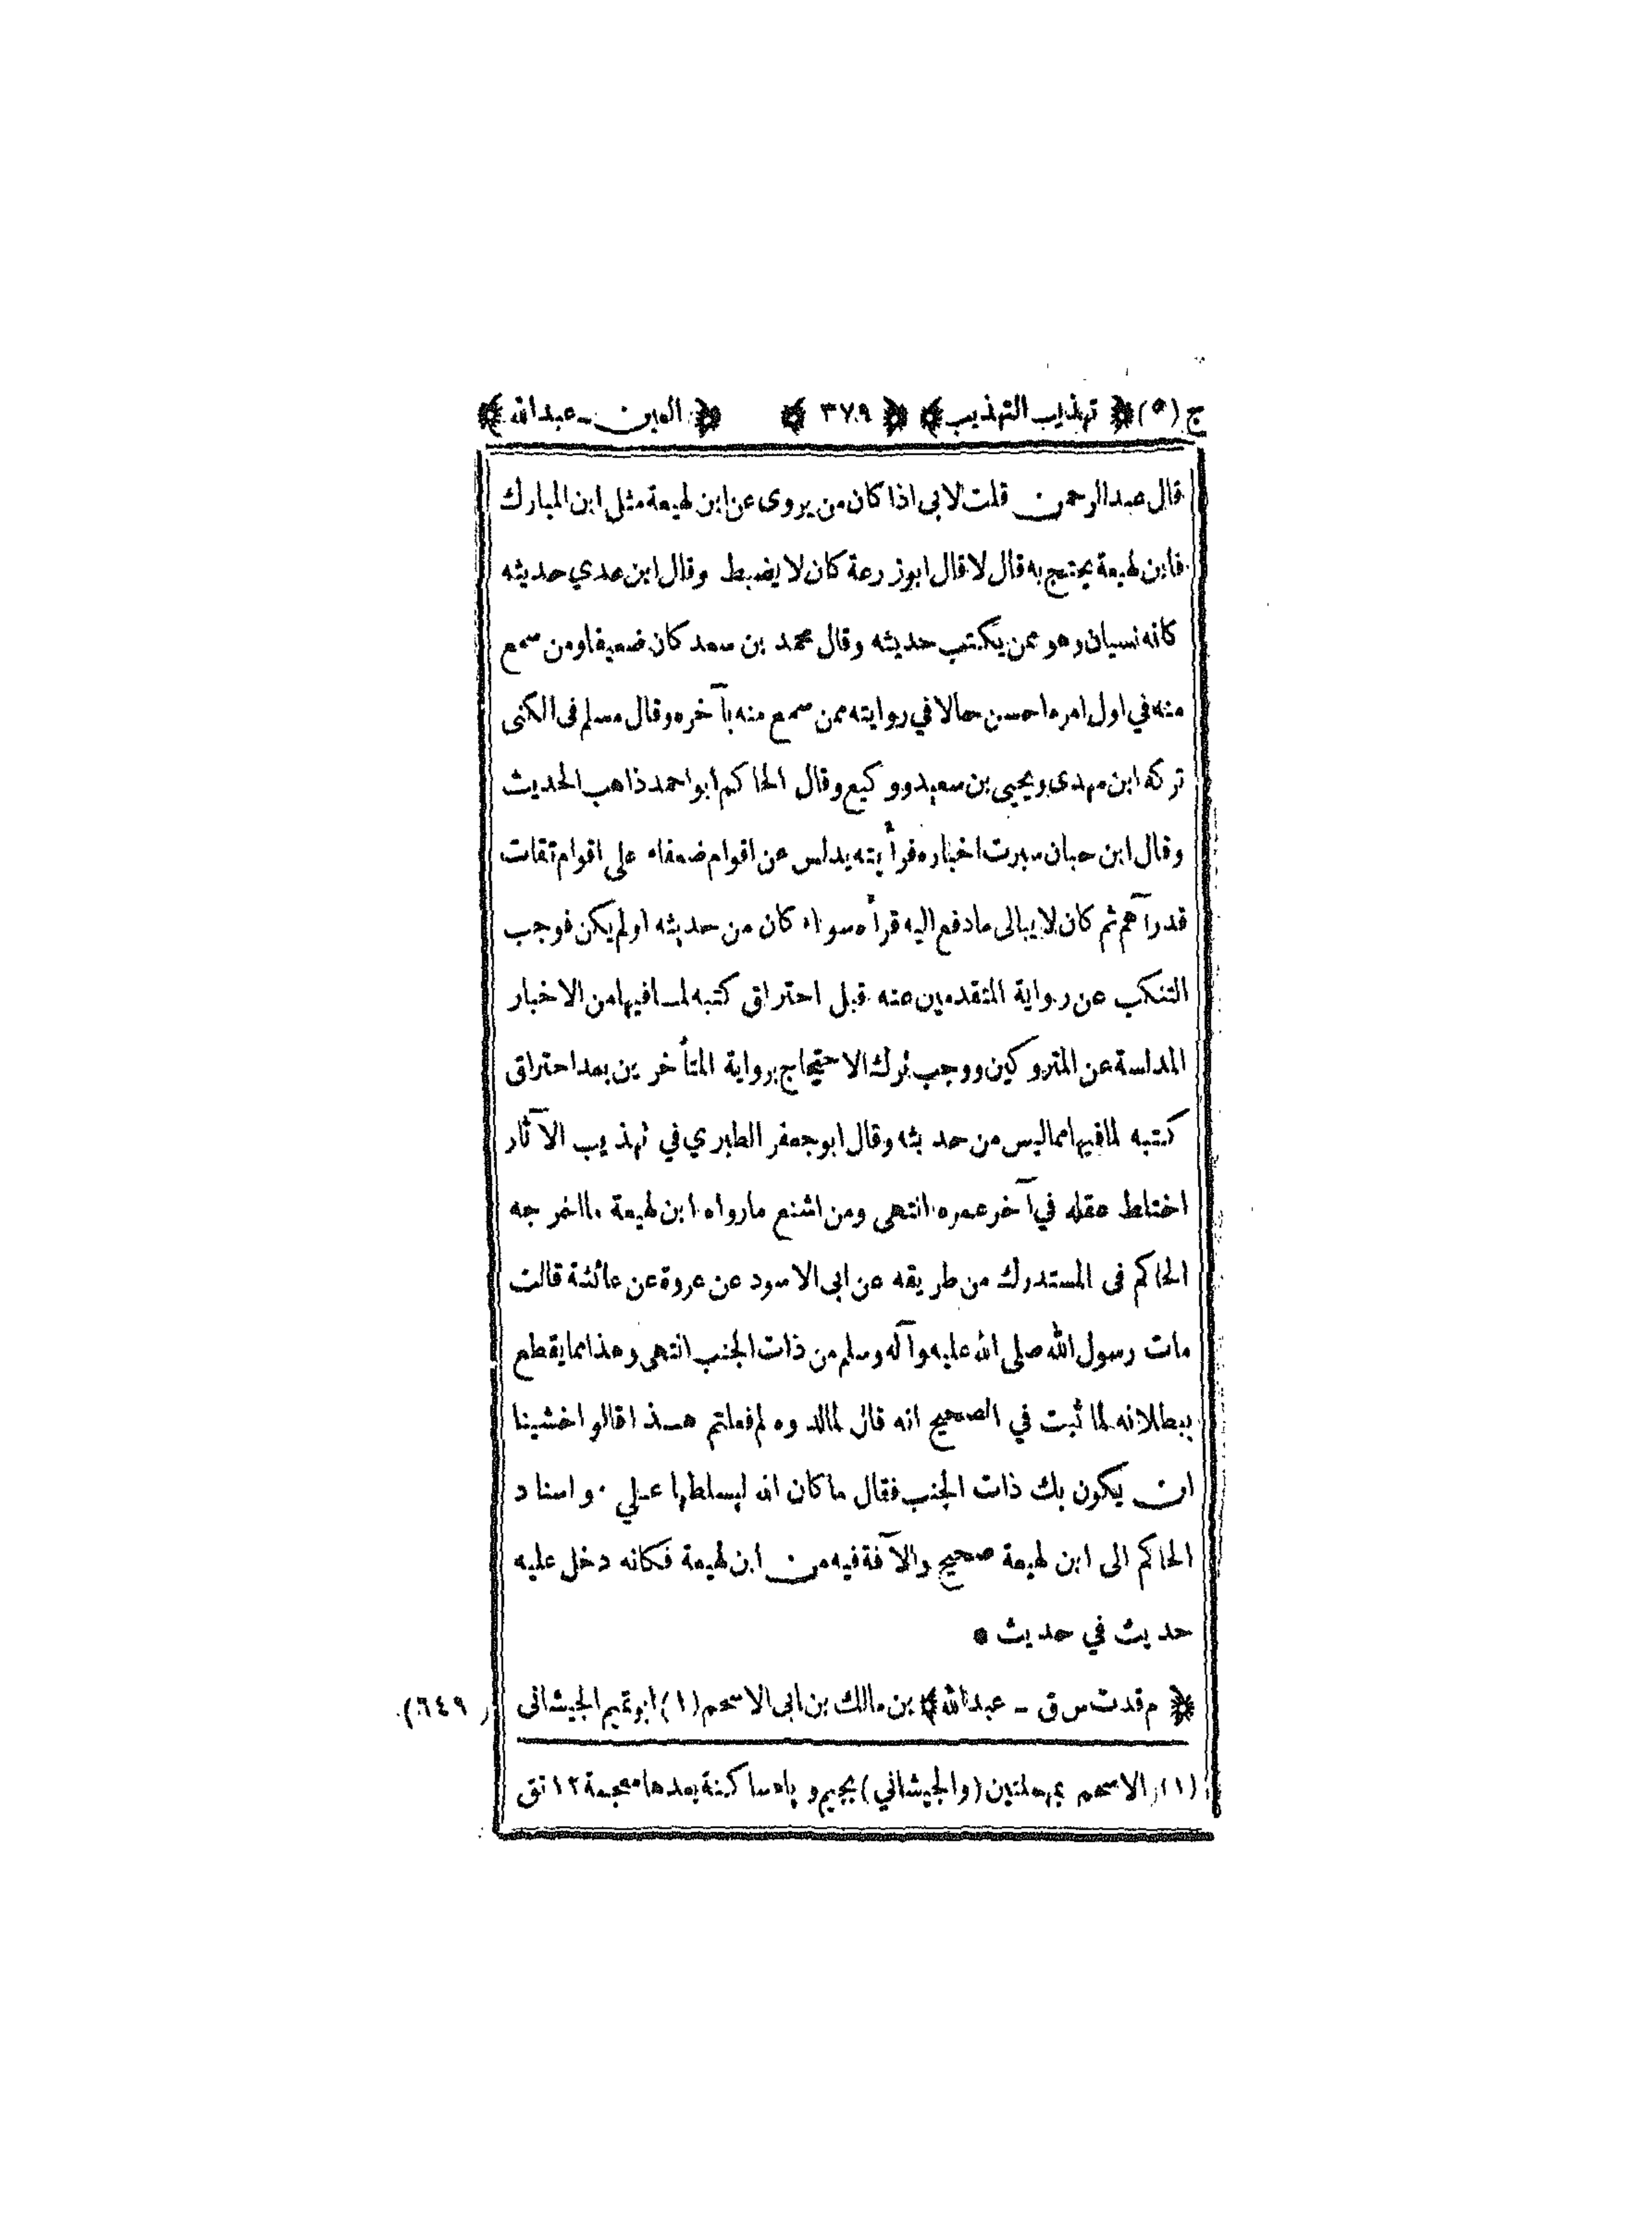 ج (٥) ﴿ تهذيب التهذيب ﴾ ﴿ ٣٧٩ ﴾ ﴿ العين - عبدالله ﴾
قال عبدالرحمن قلت لابى اذا كان من يروى عن ابن لهيعة مثل ابن المبارك
فابن لهيعة يحتج به قال لا قال ابوزرعة كان لا يضبط وقال ابن عدي حديثه
كانه نسيان وهو ممن يكتب حديثه وقال محمد بن سعد كان ضعيفا ومن سمع
منه في اول امره احسن حالا في روايته ممن سمع منه بآخره وقال مسلم فى الكنى
تركه ابن مهدى ويحيى بن سعيد ووكيع وقال الحاكم ابو احمد ذاهب الحديث
وقال ابن حبان سبرت اخباره فرأيته يدلس عن اقوام ضعفاء على اقوام ثقات
قد رآهم ثم كان لا يبالى ما دفع اليه قرأه سواء كان من حديثه او لم يكن فوجب
التنكب عن رواية المتقدمين عنه قبل احتراق كتبه لما فيها من الاخبار
المدلسة عن المتروكين ووجب ترك الاحتجاج برواية المتأخرين بعد احتراق
كتبه لما فيها مما ليس من حديثه وقال ابو جعفر الطبري في تهذيب الآثار
اختلط عقله في آخر عمره انتهى ومن اشنع ما رواه ابن لهيعة ما اخرجه
الحاكم فى المستدرك من طريقه عن ابى الاسود عن عروة عن عائشة قالت
مات رسول الله صلى الله عليه وآله وسلم من ذات الجنب انتهى وهذا مما يقطع
ببطلانه لما ثبت في الصحيح انه قال لما لدوه لم فعلتم هذا قالوا خشينا
ان يكون بك ذات الجنب فقال ما كان الله ليسلطها علي . واسناد
الحاكم الى ابن لهيعة صحيح والآفة فيه من ابن لهيعة فكانه دخل عليه
حديث في حديث •
﴿ م قد ت س ق - عبدالله ﴾ بن مالك بن ابى الاسحم (١) ابو تميم الجيشانى (٦٤٩)
(١) الاسحم بمهملتين (والجيشاني) بجيم وياء ساكنة بعدها معجمة ١٢ تق